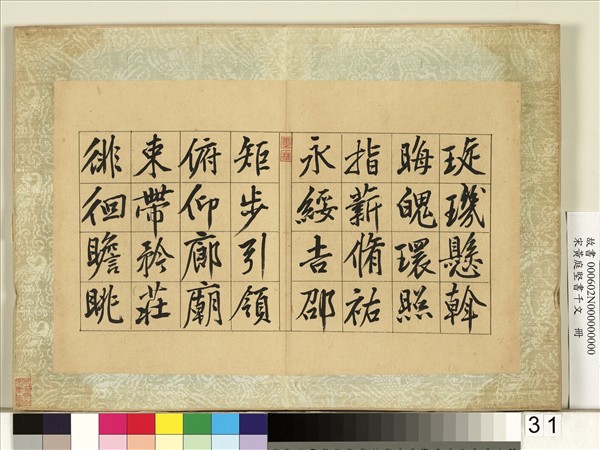 琁璣懸斡
晦魄環照
指薪脩祜
永綏吉邵
矩步引領
俯仰廊廟
束帶矜莊
徘徊瞻眺
故書 000602N000000000
宋黃庭堅書千文 冊
31